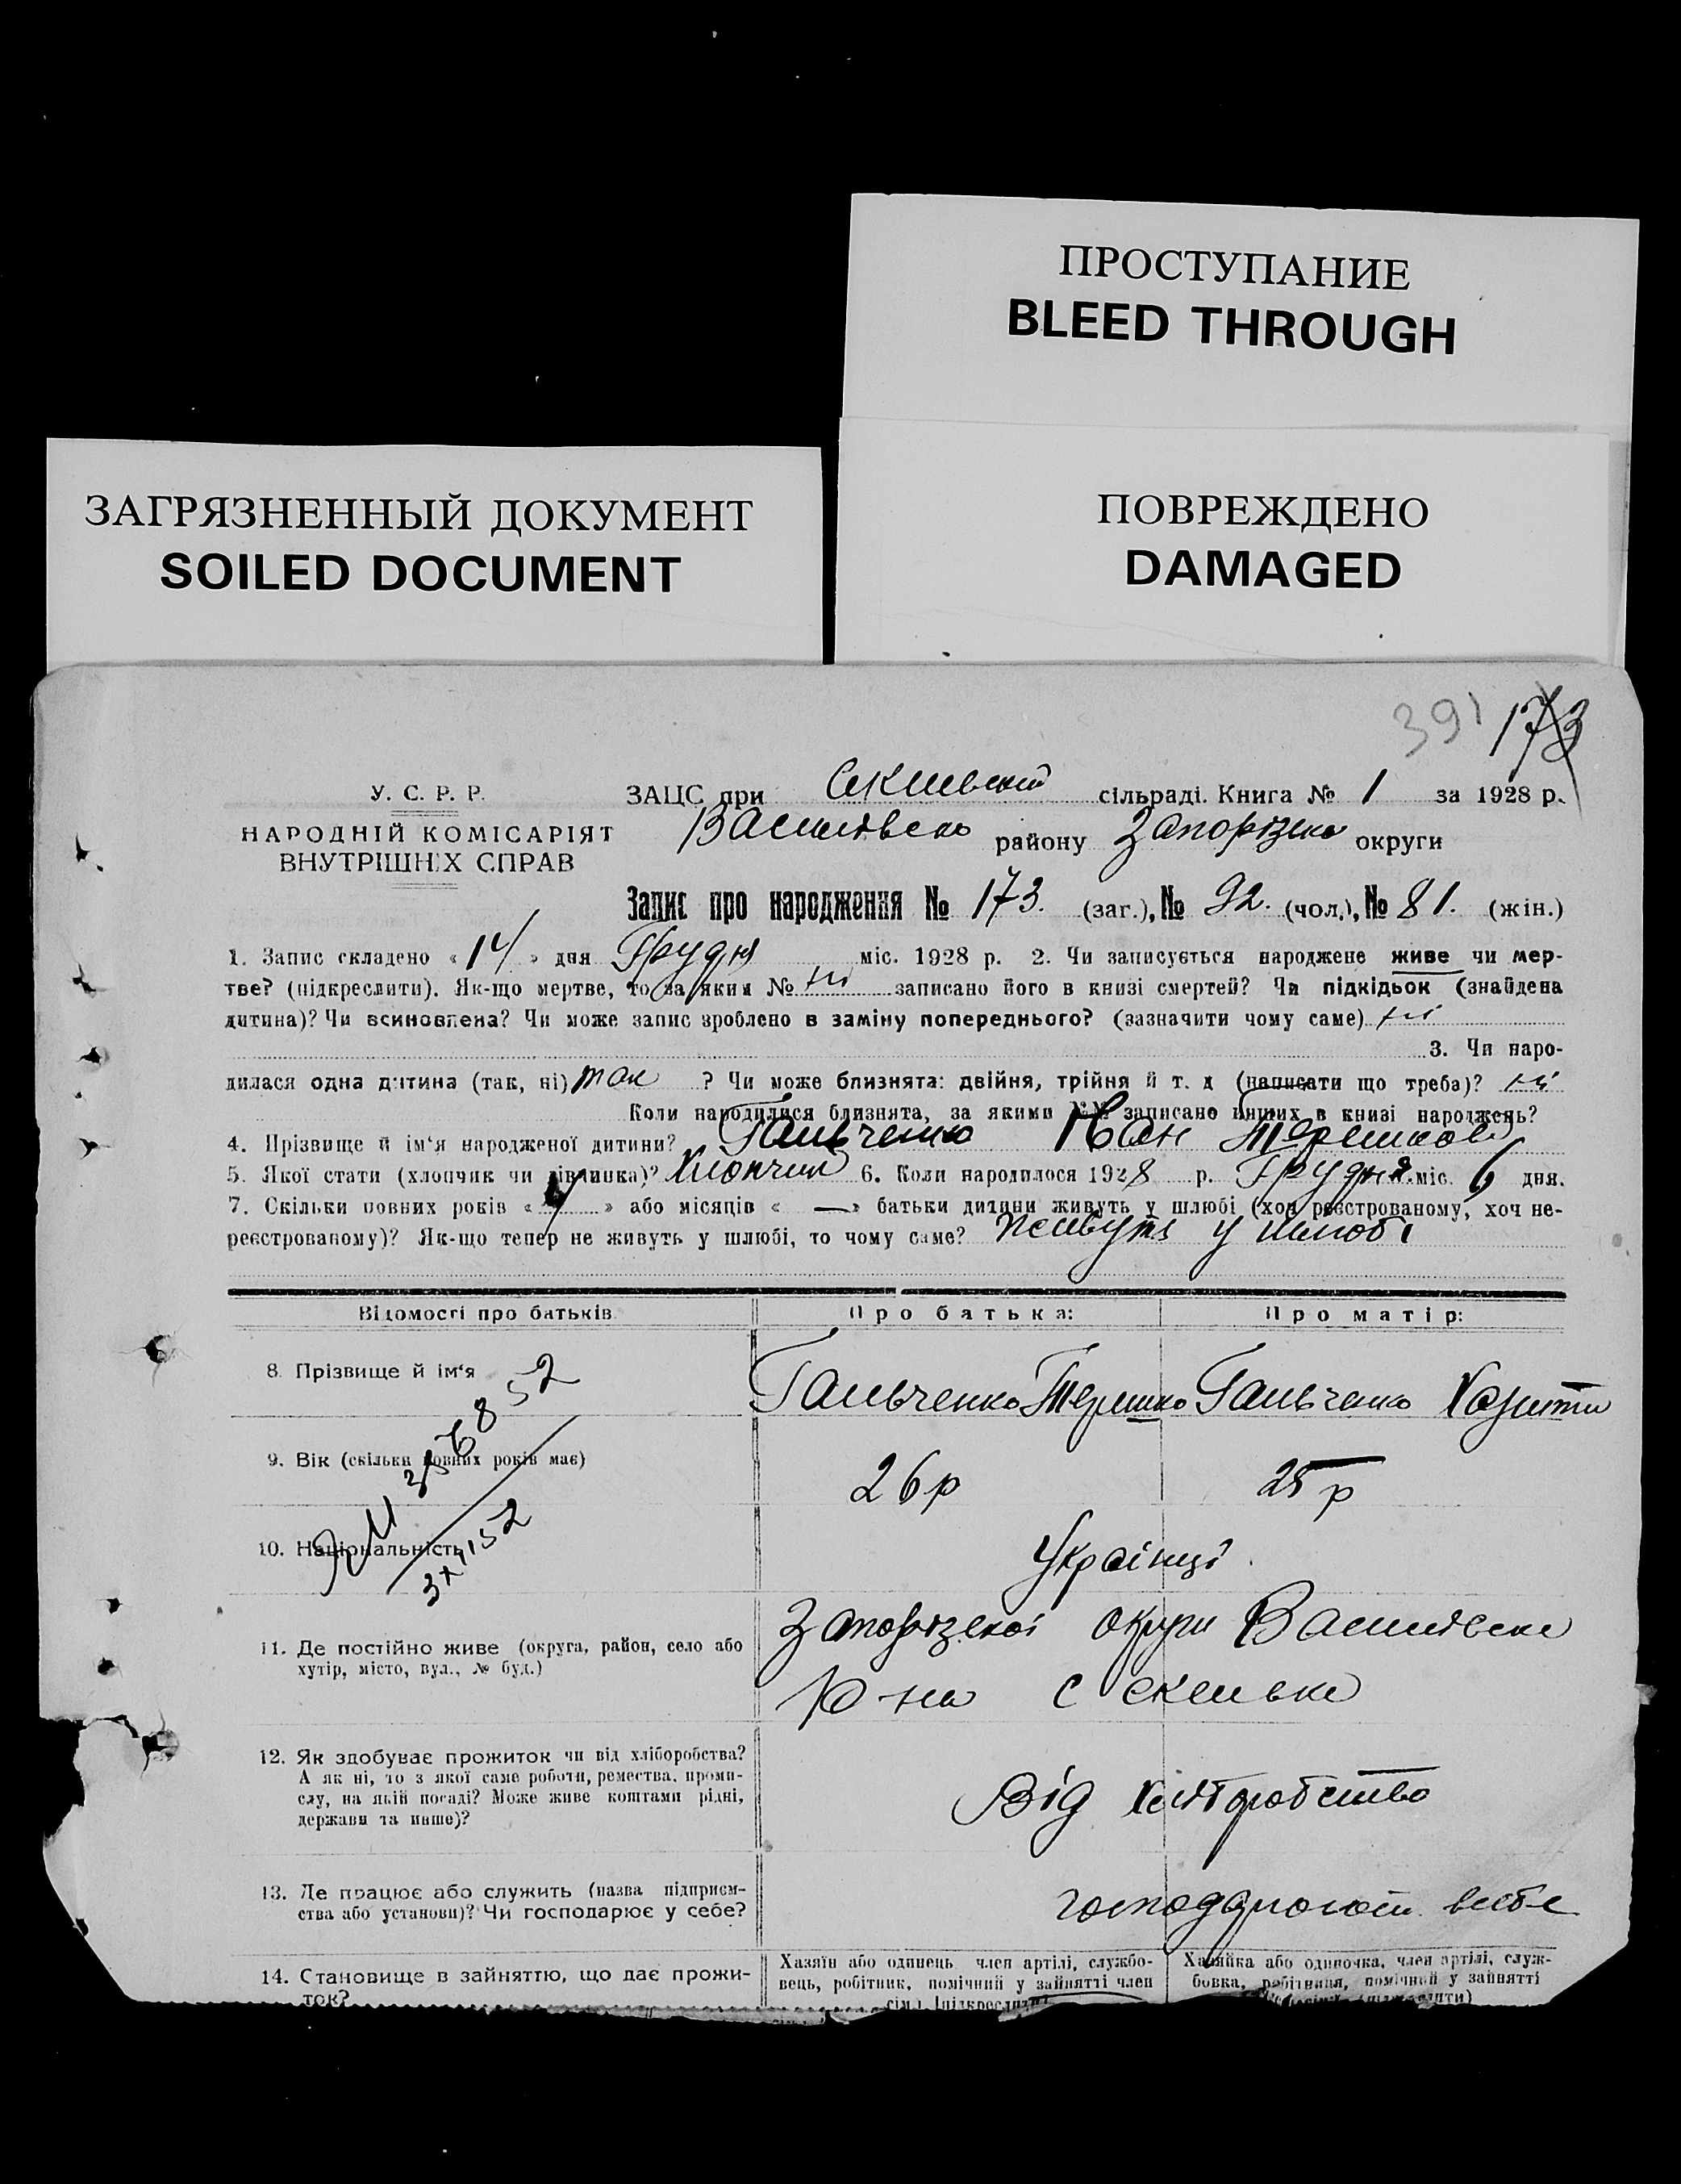 ПРОСТУПАНИЕ
BLEED THROUGH
ЗАГРЯЗНЕННЫЙ ДОКУМЕНТ
SOILED DOCUMENT
ПОВРЕЖДЕНО
DAMAGED
391 173
У. С. Р. Р.
НАРОДНІЙ КОМІСАРІЯТ
ВНУТРІШНІХ СПРАВ
ЗАЦС при сільраді. Книга № 1 за 1928 р.
району округи
Запис про народження № 173. (заг.), № 92. (чол.), № 81. (жін.)
1. Запис складено « 14 » дня Грудня міс. 1928 р. 2. Чи записується народжене живе чи мер-
тве? (підкреслити). Як-що мертве, то за яким № ні записано його в книзі смертей? Чи підкідьок (знайдена
дитина)? Чи всиновлена? Чи може запис зроблено в заміну попереднього? (зазначити чому саме) ні
3. Чи наро-
дилася одна дитина (так, ні) так ? Чи може близнята: двійня, трійня й т. д (написати що треба)? ні
Коли народилися близнята, за якими №№ записано інших в книзі народжень?
4. Прізвище й ім'я народженої дитини? Гальченко Іван
5. Якої стати (хлопчик чи дівчинка)? Хлопчик 6. Коли народилося 1928 р. Грудня міс. 6 дня.
7. Скільки повних років « » або місяців « — » батьки дитини живуть у шлюбі (хоч реєстрованому, хоч не-
реєстрованому)? Як-що тепер не живуть у шлюбі, то чому саме? Живуть у шлюбі
Відомості про батьків Про батька: Про матір:
8. Прізвище й ім'я Гальченко Терешко Гальченко
9. Вік (скільки повних років має) 26 р 25 р
10. Національність Українці
11. Де постійно живе (округа, район, село або
хутір, місто, вул., № буд.)
Запорізької округи Василівськ
Р-на с Скельки
12. Як здобуває прожиток чи від хліборобства?
А як ні, то з якої саме роботи, ремества, проми-
слу, на якій посаді? Може живе коштами рідні,
держави та инше)?
Від хліборобство
13. Де працює або служить (назва підприєм-
ства або установи)? Чи господарює у себе?
14. Становище в зайняттю, що дає прожи-
ток?
Хазяїн або одинець член артілі, службо-
вець, робітник, помічний у зайнятті член
Хазяйка або одиночка, член артілі, служ-
бовка, робітниця, помічний у зайнятті